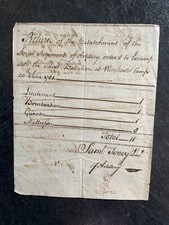 Return of the Detachment of the
Royal Regiment of Artillery order'd to Encamp
with the Battalion at Winchester Camp
20 June 1761
Lieutenant 1
Bombardier 1
Gunner 1
Mattrosses 8
Total 11
Sam. Tovey Lieut.
of Artillery